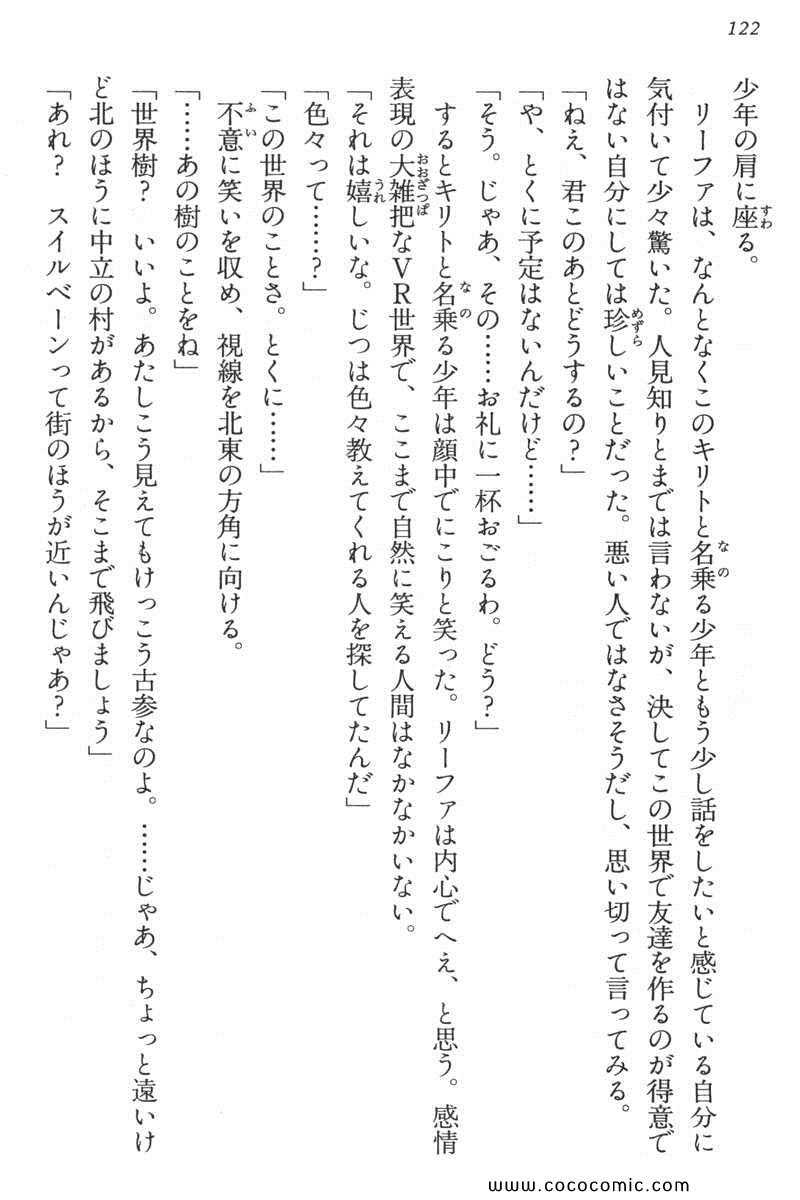 122
少年の肩に座る。
　リーファは、なんとなくこのキリトと名乗る少年ともう少し話をしたいと感じている自分に
気付いて少々驚いた。人見知りとまでは言わないが、決してこの世界で友達を作るのが得意で
はない自分にしては珍しいことだった。悪い人ではなさそうだし、思い切って言ってみる。
「ねえ、君このあとどうするの？」
「や、とくに予定はないんだけど……」
「そう。じゃあ、その……お礼に一杯おごるわ。どう？」
　するとキリトと名乗る少年は顔中でにこりと笑った。リーファは内心でへえ、と思う。感情
表現の大雑把なＶＲ世界で、ここまで自然に笑える人間はなかなかいない。
「それは嬉しいな。じつは色々教えてくれる人を探してたんだ」
「色々って……？」
「この世界のことさ。とくに……」
　不意に笑いを収め、視線を北東の方角に向ける。
「……あの樹のことをね」
「世界樹？　いいよ。あたしこう見えてもけっこう古参なのよ。……じゃあ、ちょっと遠いけ
ど北のほうに中立の村があるから、そこまで飛びましょう」
「あれ？　スイルベーンって街のほうが近いんじゃあ？」
www.cococomic.com